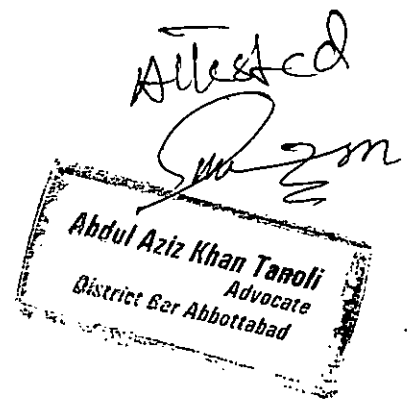 Attested
Abdul Aziz Khan Tanoli
Advocate
District Bar Abbottabad